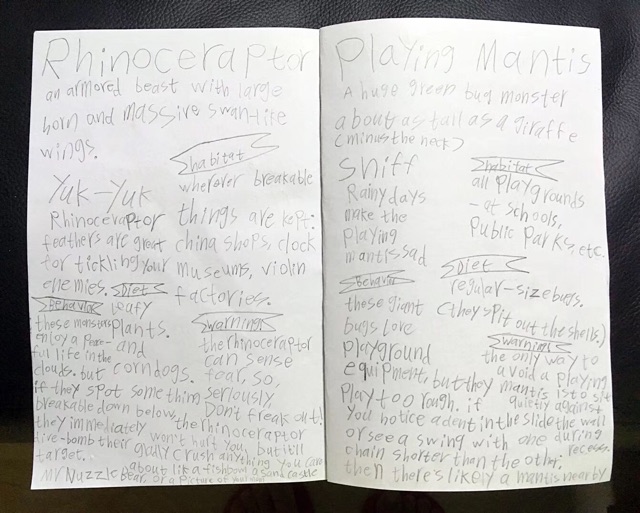 Rhinoceraptor
an armored beast with large
horn and massive swan-like
wings.
Yuk-Yuk
Rhinoceraptor
feathers are great
for tickling your
enemies.
habitat
wherever breakable
things are kept:
china shops, clock
museums, violin
factories.
Diet
leafy
plants.
and
corndogs.
Behavior
these monsters
enjoy a peace-
ful life in the
clouds. but
if they spot something
breakable down below,
they immediately
dive-bomb their
target.
Warning
the rhinoceraptor
can sense
fear, so,
seriously,
Don't freak out!
the rhinoceraptor
won't hurt you, but it'll
gladly crush anything you care
about like a fishbowl a sand castle
Mr Nuzzls bear, or a picture of
Playing Mantis
A huge green bug monster
about as tall as a giraffe
(minus the neck)
sniff
Rainy days
make the
playing
mantis sad
habitat
all playgrounds
- at schools,
public parks, etc.
Diet
regular-size bugs.
(they spit out the shells.)
Behavior
these giant
bugs love
playground
equipment, but they
play too rough. if
you notice a dent in the slide
or see a swing with one
chain shorter than the other,
then there's likely a mantis nearby
Warning
the only way to
avoid a playing
mantis is to sit
quietly against
the wall
during
recess.